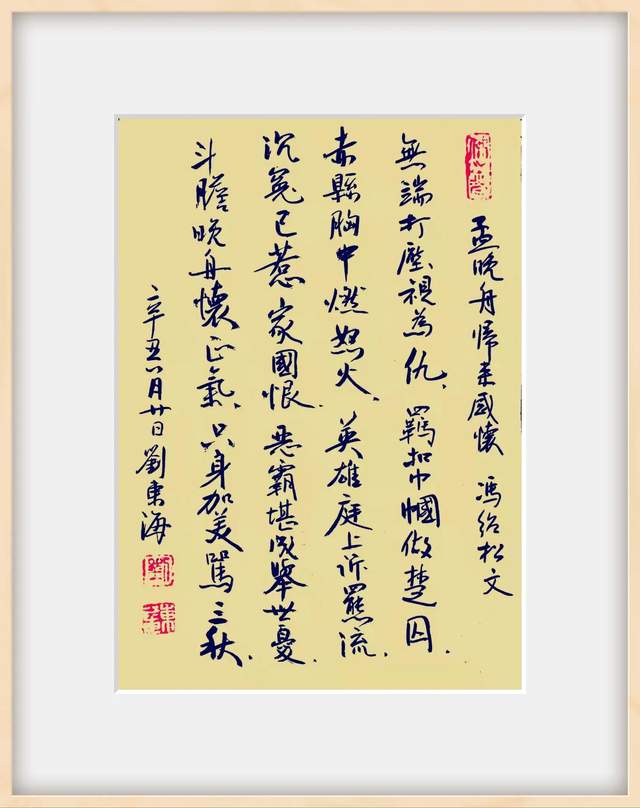 孟晚舟歸來感懷 馮紹松文
無端打壓視為仇，羈扣巾幗做楚囚．
赤縣胸中燃怒火．英雄庭上訴羆流．
沉冤已惹家國恨．惡霸堪成舉世憂．
斗膽晚舟懷正氣．只身加美罵三秋．
辛丑八月廿日劉東海